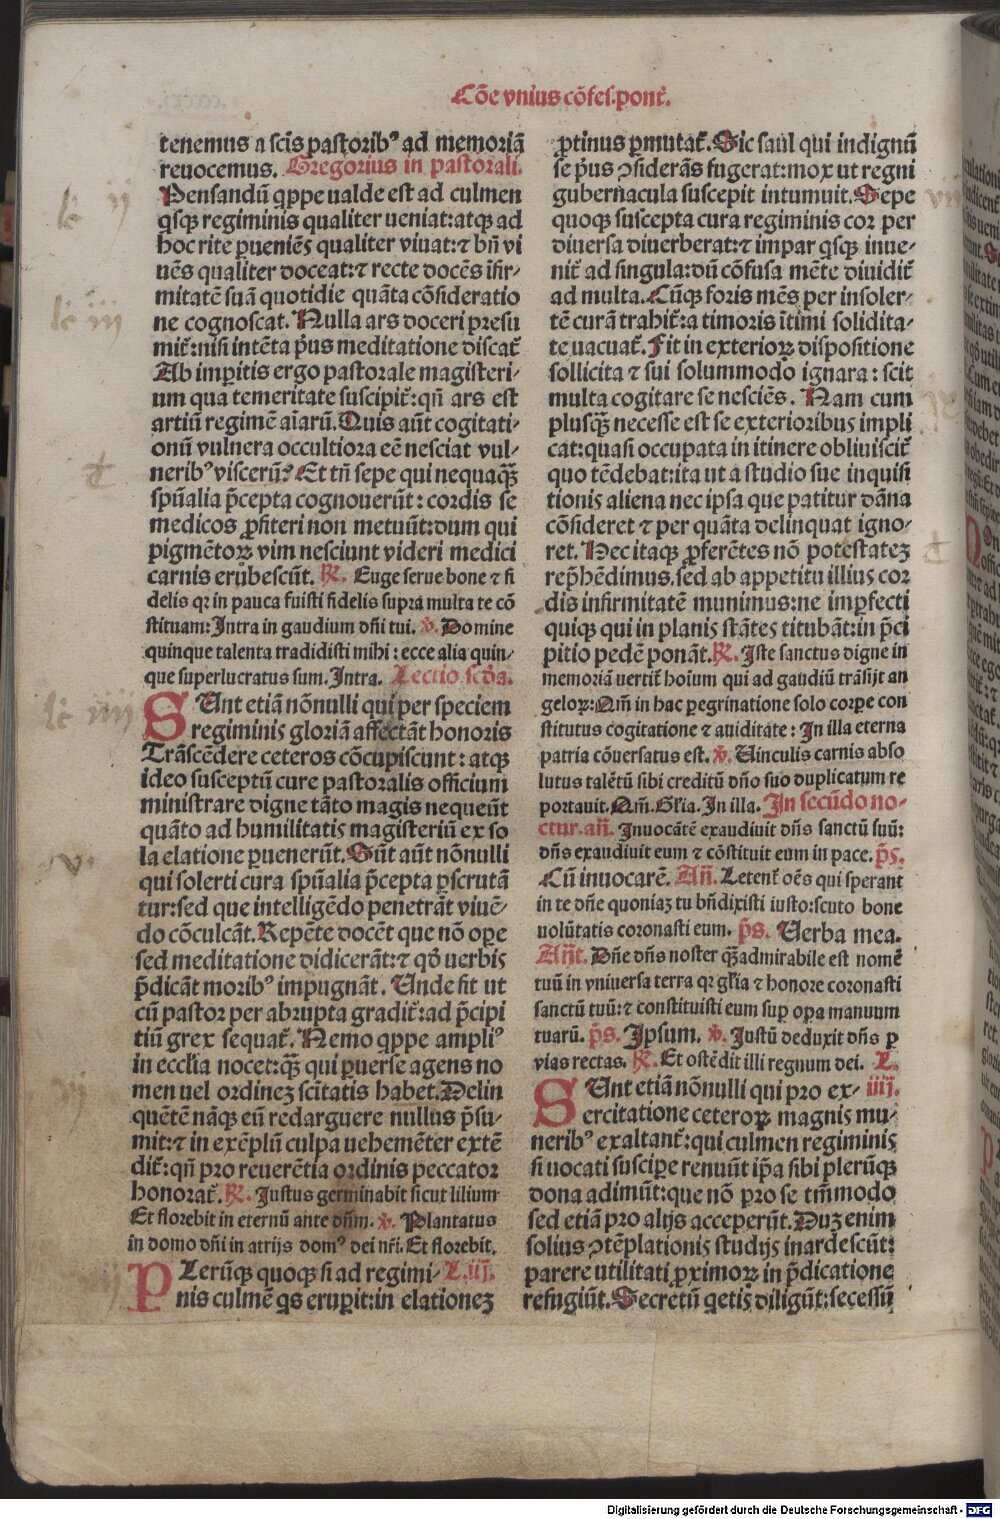 Cõe vnius cõfes.pont̃.
tenemus a scĩs pastoribꝰ ad memoriã
reuocemus. Gregorius in pastorali.
Pensandũ q̃ppe ualde est ad culmen
q̃sq̃ regiminis qualiter ueniat:atq̃ ad
hoc rite ꝑueniẽs qualiter viuat:⁊ bñ vi
uẽs qualiter doceat:⁊ recte docẽs ĩfir-
mitatẽ suã quotidie quãta cõsideratio
ne cognoscat. Nulla ars doceri presu
mit̃:nisi intẽta p̃us meditatione discat̃
Ab imꝑitis ergo pastorale magisteri-
um qua temeritate suscipit̃:qñ ars est
artiũ regimẽ aĩarũ. Quis aũt cogitati-
onũ vulnera occultiora eẽ nesciat vul-
neribꝰ viscerũ? Et tñ sepe qui nequaq̃̃
spũalia p̃cepta cognouerũt: cordis se
medicos ꝓfiteri non metuũt:dum qui
pigmẽtoꝝ vim nesciunt videri medici
carnis erubescũt. ℟. Euge serue bone ⁊ fi
delis qꝛ in pauca fuisti fidelis supra multa te cõ
stituam: Intra in gaudium dñi tui. ℣. Domine
quinque talenta tradidisti mihi: ecce alia quin-
que superlucratus sum. Intra. Lectio scd̃a.
SVnt etiã nõnulli qui per speciem
regiminis gloriã affectãt honoris
Trãscẽdere ceteros cõcupiscunt: atq̃
ideo susceptũ cure pastoralis officium
ministrare digne tãto magis nequeũt
quãto ad humilitatis magisteriũ ex so
la elatione ꝑuenerũt. Sũt aũt nõnulli
qui solerti cura spũalia p̃cepta ꝑscrutã
tur:sed que intelligẽdo penetrãt viuẽ-
do cõculcãt. Repẽte docẽt que nõ oꝑe
sed meditatione didicerãt:⁊ qd̃ uerbis
p̃dicãt moribꝰ impugnãt. Unde fit ut
cũ pastor per abrupta gradit̃:ad p̃cipi
tiũ grex sequat̃. Nemo q̃ppe ampliꝰ
in ecclia nocet:q̃̃ qui ꝑuerse agens no
men uel ordinez scĩtatis habet. Delin
quẽtẽ nãq̃ eũ redarguere nullus p̃su-
mit:⁊ in exẽplũ culpa uehemẽter extẽ
dit̃:qñ pro reuerẽtia ordinis peccator
honorat̃. ℟. Justus germinabit sicut lilium
Et florebit in eternũ ante dñm. ℣. Plantatus
in domo dñi in atrijs domꝰ dei nr̃i. Et florebit.
PLerũq̃ quoq̃ si ad regimi- L.iij.
nis culmẽ q̃s eruꝑit:in elationez
ꝓtinus ꝑmutat̃. Sic saul qui indignũ
se p̃us ꝯsiderãs fugerat:mox ut regni
gubernacula suscepit intumuit. Sepe
quoq̃ suscepta cura regiminis cor per
diuersa diuerberat:⁊ impar q̃sq̃ inue-
nit̃ ad singula:dũ cõfusa mẽte diuidit̃
ad multa. Cũq̃ foris mẽs per insoler-
tẽ curã trahit̃:a timoris ĩtimi solidita-
te uacuat̃. Fit in exterioꝝ dispositione
sollicita ⁊ sui solummodo ignara: scit
multa cogitare se nesciẽs. Nam cum
plusq̃̃ necesse est se exterioribus impli
cat:quasi occupata in itinere obliuiscit̃
quo tẽdebat:ita ut a studio sue inquisi
tionis aliena nec ipsa que patitur dãna
cõsideret ⁊ per quãta delinquat igno-
ret. Nec itaq̃ ꝓferẽtes nõ potestatez
rep̃hẽdimus.sed ab appetitu illius cor
dis infirmitatẽ munimus:ne imꝑfecti
quiq̃ qui in planis stãtes titubãt:in p̃ci
pitio pedẽ ponãt. ℟. Iste sanctus digne in
memoriã uertit̃ hoĩum qui ad gaudiũ trãsijt an
geloꝝ:Qm̃ in hac ꝑegrinatione solo corꝑe con
stitutus cogitatione ⁊ auiditate: In illa eterna
patria cõuersatus est. ℣. Uinculis carnis abso
lutus talẽtũ sibi creditũ dño suo duplicatum re
portauit. Qm̃. Gl̃ia. In illa. In secũdo no-
ctur. añ. Inuocãtẽ exaudiuit dñs sanctũ suũ:
dñs exaudiuit eum ⁊ cõstituit eum in pace. p̃s.
Cũ inuocarẽ. Añ. Letent̃ oẽs qui sperant
in te dñe quoniaz tu bñdixisti iusto:scuto bone
uolũtatis coronasti eum. p̃s. Uerba mea.
Añt. Dñe dñs noster q̃̃admirabile est nomẽ
tuũ in vniuersa terra qꝛ gl̃ia ⁊ honore coronasti
sanctũ tuũ:⁊ constituisti eum suꝑ oꝑa manuum
tuarũ. p̃s. Ipsum. ℣. Justũ deduxit dñs ꝑ
vias rectas. ℟. Et ostẽdit illi regnum dei. L.
SVnt etiã nõnulli qui pro ex- iiij.
ercitatione ceteroꝝ magnis mu-
neribꝰ exaltant̃:qui culmen regiminis
si uocati suscipe renuũt ip̃a sibi plerũq̃
dona adimũt:que nõ pro se tm̃modo
sed etiã pro alijs acceperũt. Duz enim
solius ꝯtẽplationis studijs inardescũt:
parere utilitati ꝓximoꝝ in p̃dicatione
refugiũt. Secretũ q̃etis diligũt:secessũ
Digitalisierung gefördert durch die Deutsche Forschungsgemeinschaft - DFG